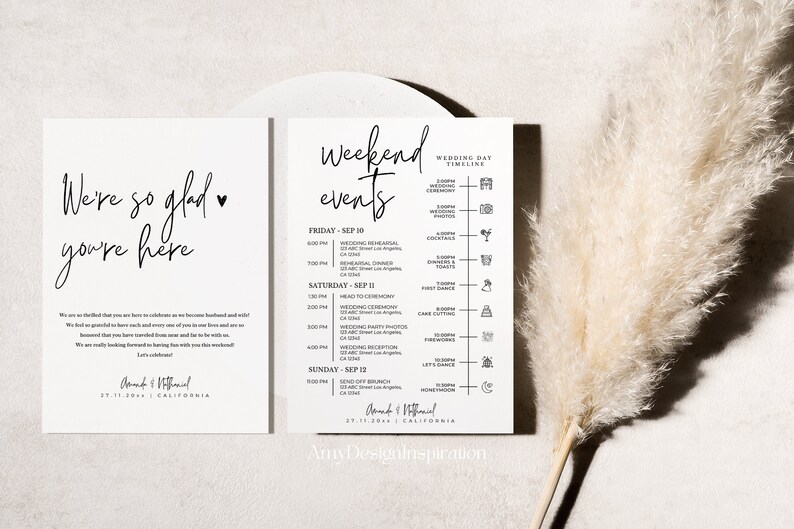 We're so glad
you're here
We are so thrilled that you are here to celebrate as we become husband and wife!
We feel so grateful to have each and every one of you in our lives and are so
honored that you have traveled from near and far to be with us.
We are really looking forward to having fun with you this weekend!
Let's celebrate!
Amanda & Nathaniel
27.11.20xx | CALIFORNIA
weekend
events
FRIDAY - SEP 10
6:00 PM WEDDING REHEARSAL
123 ABC Street Los Angeles,
CA 12345
7:00 PM REHEARSAL DINNER
123 ABC Street Los Angeles,
CA 12345
SATURDAY - SEP 11
1:30 PM HEAD TO CEREMONY
2:00 PM WEDDING CEREMONY
123 ABC Street Los Angeles,
CA 12345
3:00 PM WEDDING PARTY PHOTOS
123 ABC Street Los Angeles,
CA 12345
4:00 PM WEDDING RECEPTION
123 ABC Street Los Angeles,
CA 12345
SUNDAY - SEP 12
11:00 PM SEND OFF BRUNCH
123 ABC Street Los Angeles,
CA 12345
WEDDING DAY
TIMELINE
2:00PM
WEDDING
CEREMONY
3:00PM
WEDDING
PHOTOS
4:00PM
COCKTAILS
5:00PM
DINNERS &
TOASTS
7:00PM
FIRST DANCE
8:00PM
CAKE CUTTING
10:00PM
FIREWORKS
10:30PM
LET'S DANCE
11:30PM
HONEYMOON
Amanda & Nathaniel
27.11.20xx | CALIFORNIA
AmyDesignInspiration